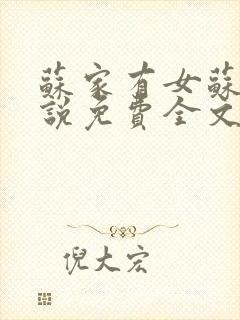 蘇家有女蘇
說免費全文
倪大宏